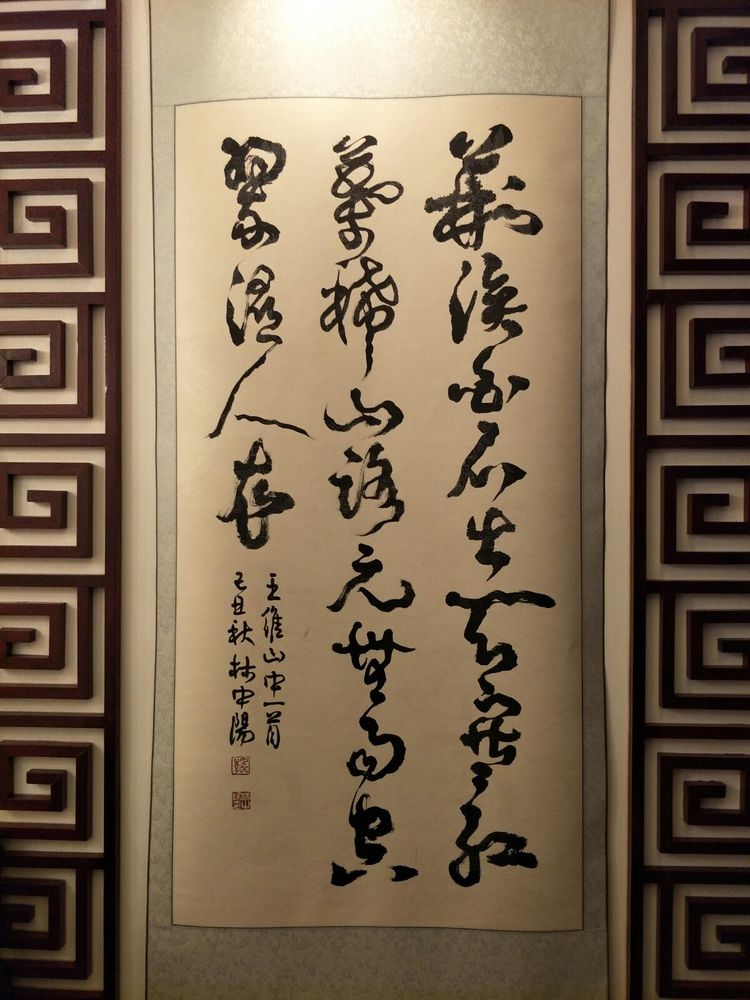 荊溪白石出天寒紅
葉稀山路元無雨空
翠濕人衣
王維山中一首
己丑秋林中陽